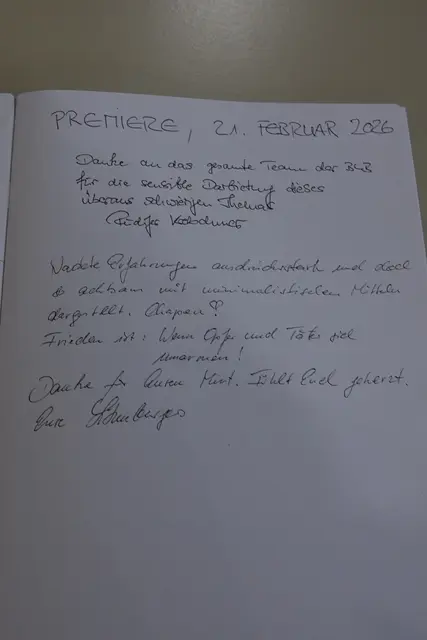 PREMIERE, 21. FEBRUAR 2026
Danke an das gesamte Team der
für die sensible Darbietung dieses
überaus schwierigen Themas
Erfahrungen ausdrucksstark und doch
so achtsam mit minimalistischen Mitteln
dargestellt. Chapeau ♡
Frieden ist: Wenn Opfer und Täter sich
umarmen!
Danke für Euren Mut. Fühlt Euch geherzt.
Eure